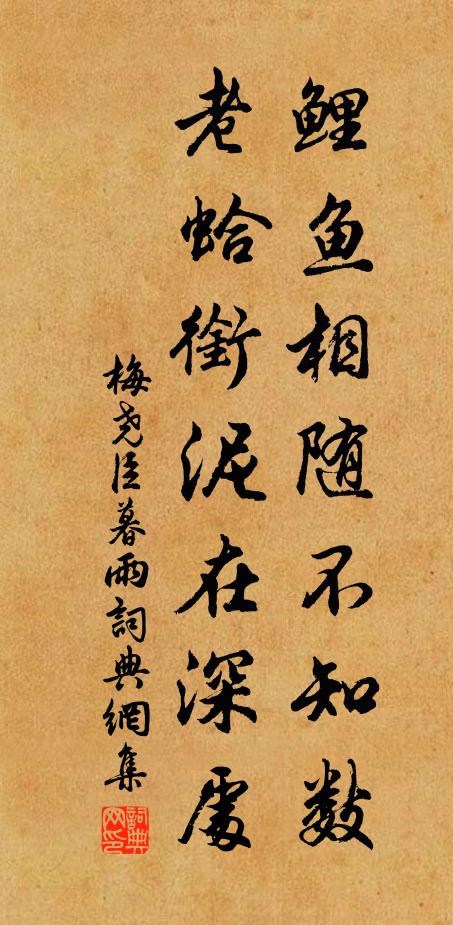 鲤鱼相随不知数
老蛤銜泥在深處
梅尧臣暮雨詞典網集
詞典网印